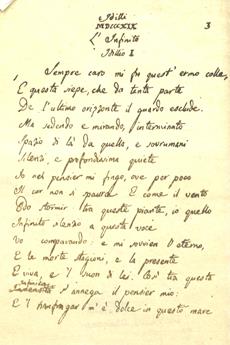 Idilli
MDCCCXIX
3
L'Infinito
Idillio I
Sempre caro mi fu quest'ermo colle,
E questa siepe, che da tanta parte
De l'ultimo orizzonte il guardo esclude.
Ma sedendo e mirando, interminato
Spazio di là da quella, e sovrumani
Silenzi, e profondissima quiete
Io nel pensier mi fingo, ove per poco
Il cor non si spaura. E come il vento
Odo stormir tra queste piante, io quello
Infinito silenzio a questa voce
Vo comparando: e mi sovvien l'eterno,
E le morte stagioni, e la presente
E viva, e 'l suon di lei. Così tra questa
Immensità s'annega il pensier mio:
E 'l naufragar m'è dolce in questo mare